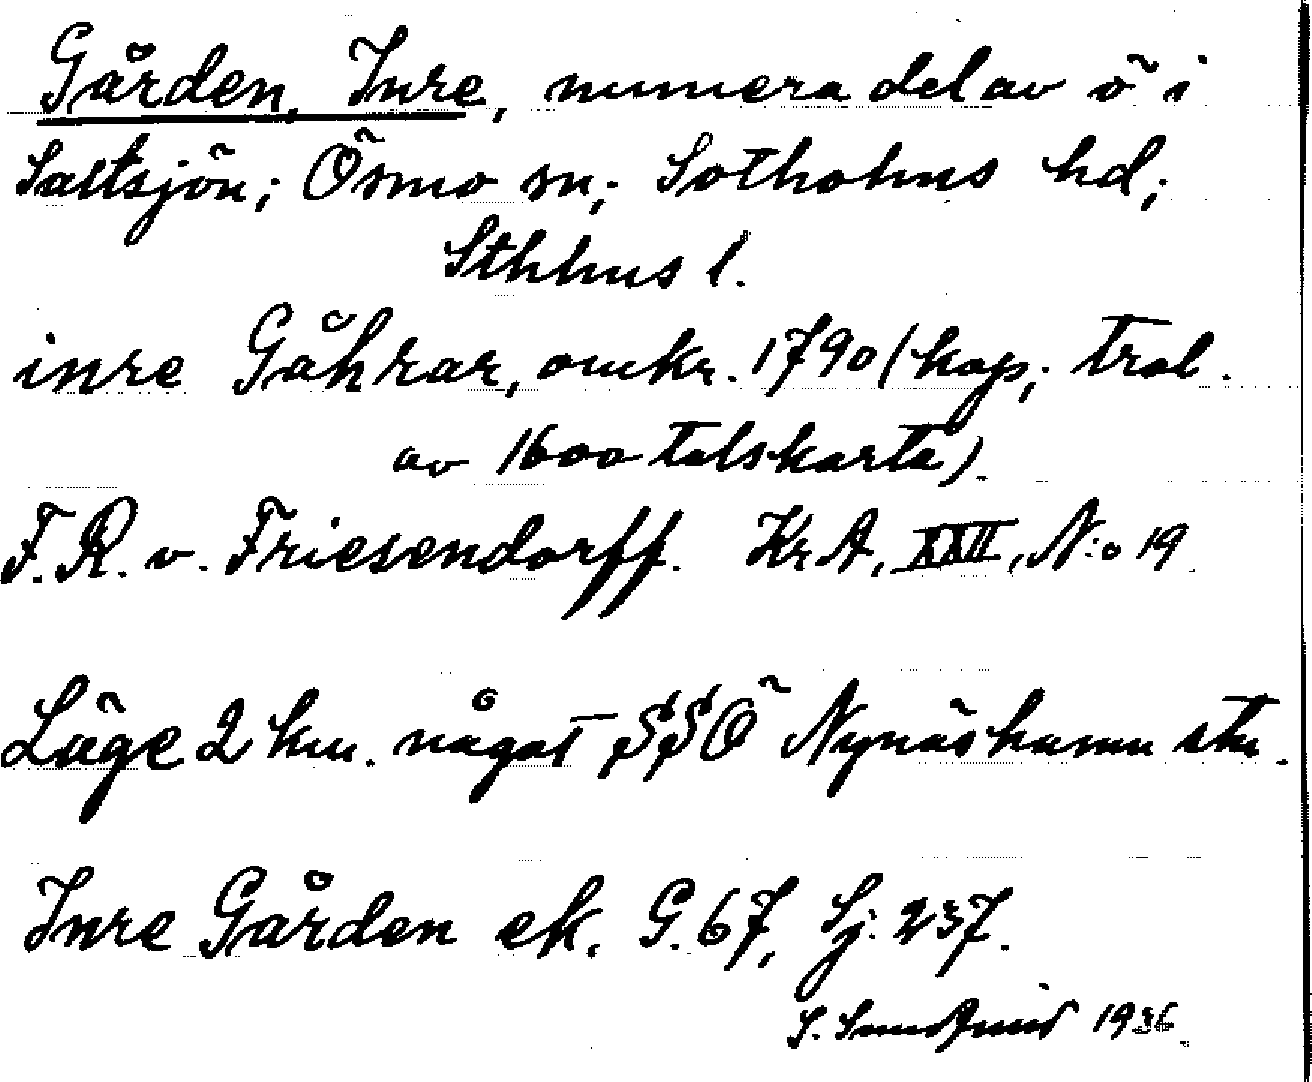 Gården, Inre, numera del av ö i
Saltsjön; Ösmo sn; Sotholms hd;
Sthlms l.
inre Gåhrar, omkr. 1790 (kop; trol.
av 1600 talskarta).
F. R. v. Friesendorff. Kr A, XXII, N:o 19
Läge 2 km. något SSÖ Nynäshamn stn.
Inre Gården ek. G. 67, Sj: 237.
S. 1936.